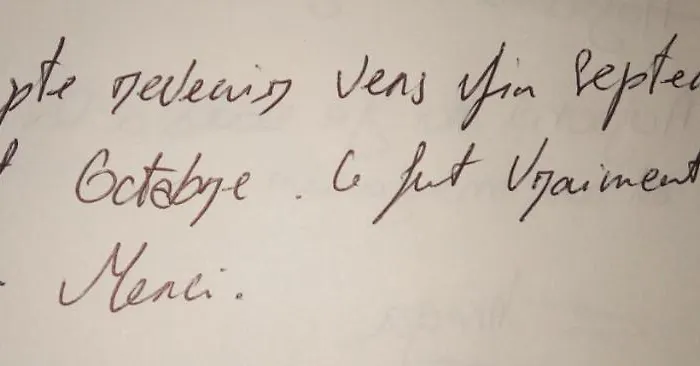 pte revenir vers fin Septe
Octobre. Ce fut vraiment
Merci.